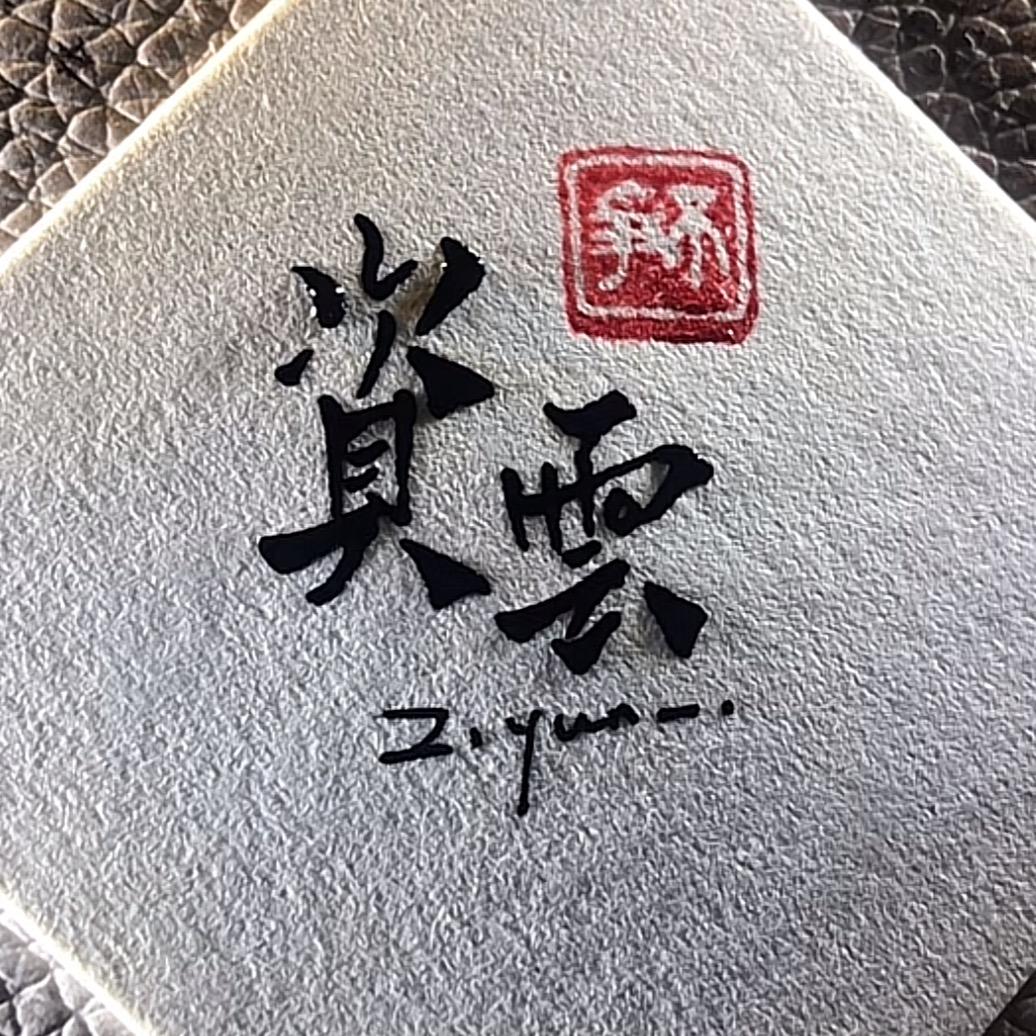 資雲
Ziyun